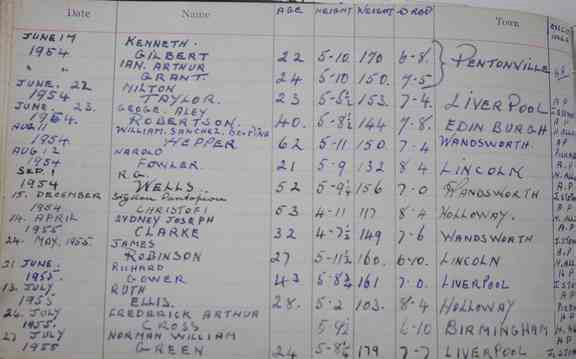 Date Name AGE HEIGHT WEIGHT DROP Town
JUNE 17 KENNETH.
1954 GILBERT 22 5-10 170 6-8. PENTONVILLE
IAN. ARTHUR
" " GRANT. 24 5-10 150. 7-5
JUNE. 22 MILTON
1954 TAYLOR. 23 5-5½ 153. 7-4. LIVERPOOL
JUNE. 23. GEOGE. ALEX
1954 ROBERTSON. 40. 5-8½ 144 7-8. EDINBURGH
AUG 11 WILLIAM. SANCHEZ.
1954 HEPPER 62 5-11 150 7-4 WANDSWORTH.
AUG 12 HAROLD
1954 FOWLER. 21 5-9 132 8 4 LINCOLN
SEP. 1 R.G.
1954 WELLS. 52 156 7-0 WANDSWORTH
15. DECEMBER
1954 CHRISTOFI 53 4-11 117 8-4 HOLLOWAY.
14. APRIL SYDNEY JOSEPH
1955 CLARKE 32 4-7½ 149 7-6 WANDSWORTH
24. MAY. 1955 JAMES
ROBINSON 27 5-11½ 160. LINCOLN
21 JUNE. RICHARD
1955. GOWER 43 161 7-0. LIVERPOOL
13. JULY RUTH
1955 ELLIS. 28. 5-2 103. 8-4 HOLLOWAY
26. JULY FREDERICK ARTHUR
1955. CROSS 5 9½ 6-10 BIRMINGHAM
27 JULY NORMAN WILLIAM
1955 GREEN 24 179 7-7 LIVERPOOL